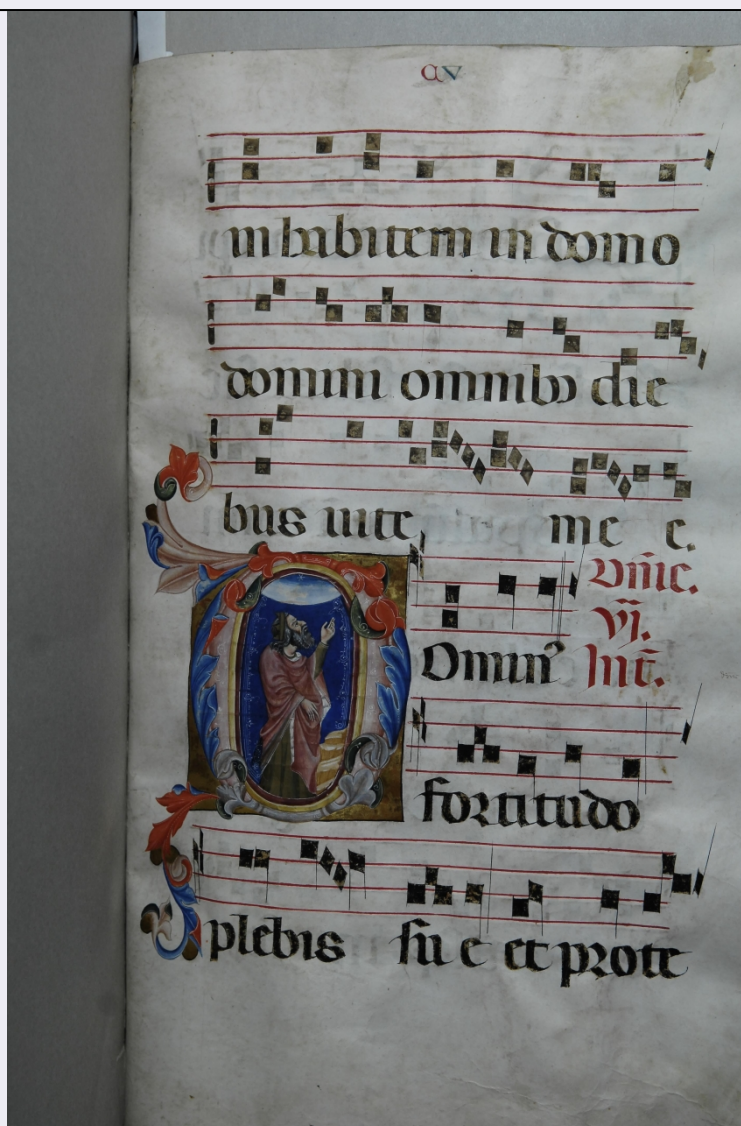 CV
inhabitem in domo
domini omnibꝫ die
bus uite me e.
Dnĩc.
Omin⁹ vj.
Int̃.
fortitudo
plebis su e et prote